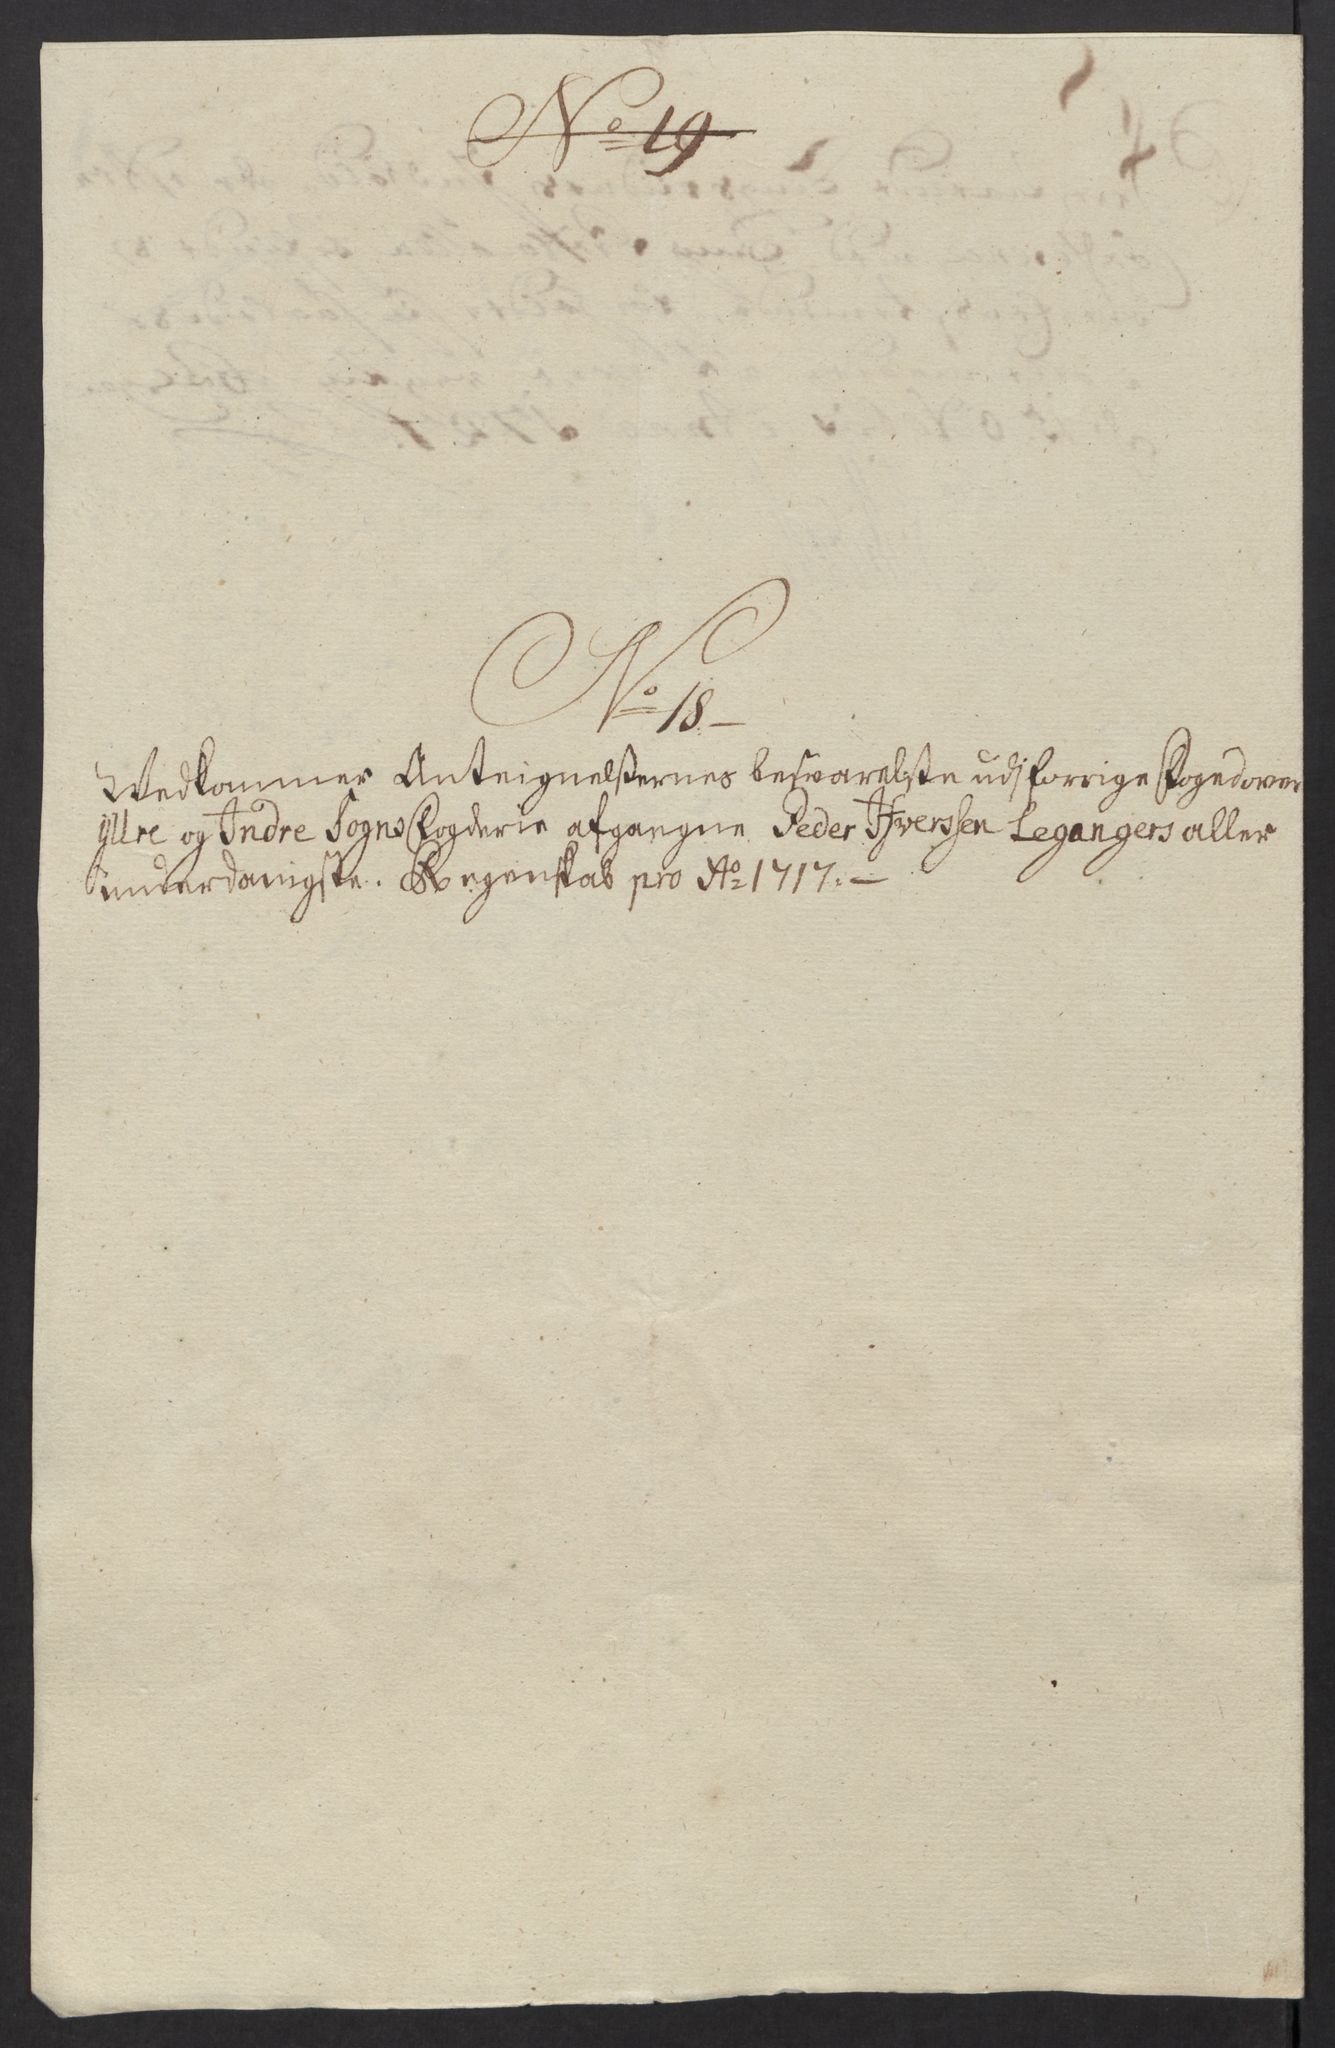 No 19
No 18
Wedkommer Anteignelsernes besvarelse udj forrige Foged over
Yttre og Indre Sogns Fogderie afgangne Peder Ifverssen Legangers aller
underdanigste Regenskab pro Ao 1717.